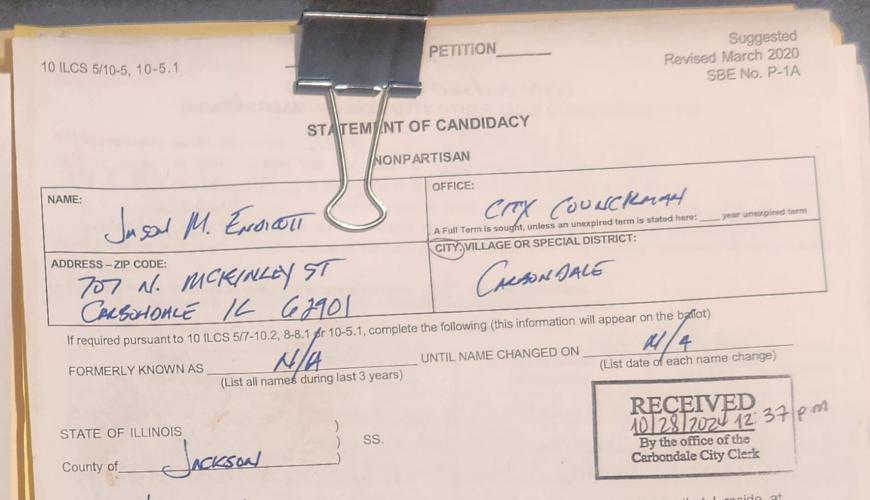 10 ILCS 5/10-5, 10-5.1
PETITION______
Suggested
Revised March 2020
SBE No. P-1A
STATEMENT OF CANDIDACY
NONPARTISAN
NAME:
Jason M. Endicott
OFFICE:
CITY COUNCILMAN
A Full Term is sought, unless an unexpired term is stated here: ____ year unexpired term
ADDRESS – ZIP CODE:
707 N. MCKINLEY ST
CARBONDALE IL 62901
CITY, VILLAGE OR SPECIAL DISTRICT:
CARBONDALE
If required pursuant to 10 ILCS 5/7-10.2, 8-8.1 or 10-5.1, complete the following (this information will appear on the ballot)
FORMERLY KNOWN AS N/A UNTIL NAME CHANGED ON N/A
(List all names during last 3 years) (List date of each name change)
STATE OF ILLINOIS )
) SS.
County of JACKSON )
RECEIVED
10/28/2024 12:37 pm
By the office of the
Carbondale City Clerk